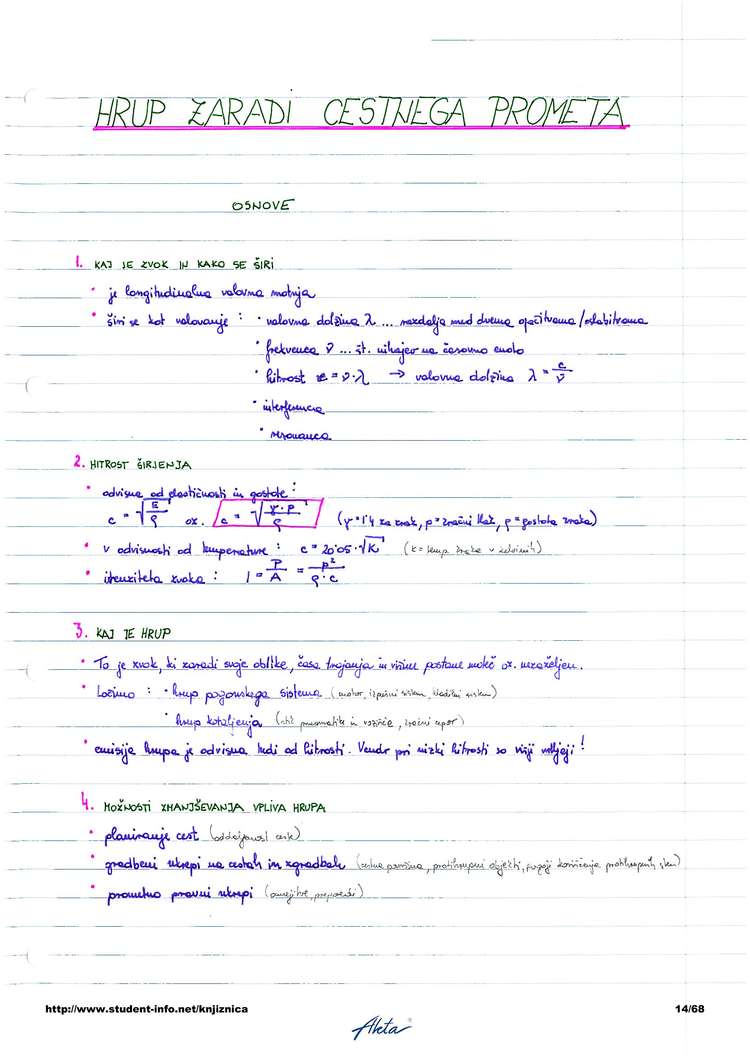 HRUP ZARADI CESTNEGA PROMETA
OSNOVE
1. KAJ JE ZVOK IN KAKO SE ŠIRI
• je longitudinalna valovna motnja
• širi se kot valovanje : • valovna dolžina λ ... razdalja med dvema zgoščitvama/oslabitvama
• frekvenca ν ... št. nihajev na časovno enoto
• hitrost c = ν·λ → valovna dolžina λ = c/ν
• interferenca
• resonanca
2. HITROST ŠIRJENJA
• odvisna od elastičnosti in gostote :
c = √(E/ρ) oz. c = √(γ·p/ρ) (γ=1'4 za zrak, p=zračni tlak, ρ=gostota zraka)
• v odvisnosti od temperature : c = 20'05·√K (K= temp. zraka v kelvinih)
• intenziteta zvoka : I = P/A = p²/ρ·c
3. KAJ JE HRUP
• To je zvok, ki zaradi svoje oblike, časa trajanja in višine postane moteč oz. nezaželjen.
• Ločimo : • hrup pogonskega sistema (motor, izpušni sistem, hladilni sistem)
• hrup kotaljenja (stik pnevmatike in vozišča, zračni upor)
• emisija hrupa je odvisna tudi od hitrosti. Vendr pri nizki hitrosti so višji vrtljaji!
4. MOŽNOSTI ZMANJŠEVANJA VPLIVA HRUPA
• planiranje cest (oddaljenost cest)
• gradbeni ukrepi na cestah in zgradbah (cestna površina, protihrupni objekti, pogoji koriščenja protihrupnih oken)
• prometno pravni ukrepi (omejitve, prepovedi)
http://www.student-info.net/knjiznica
14/68
Aleta